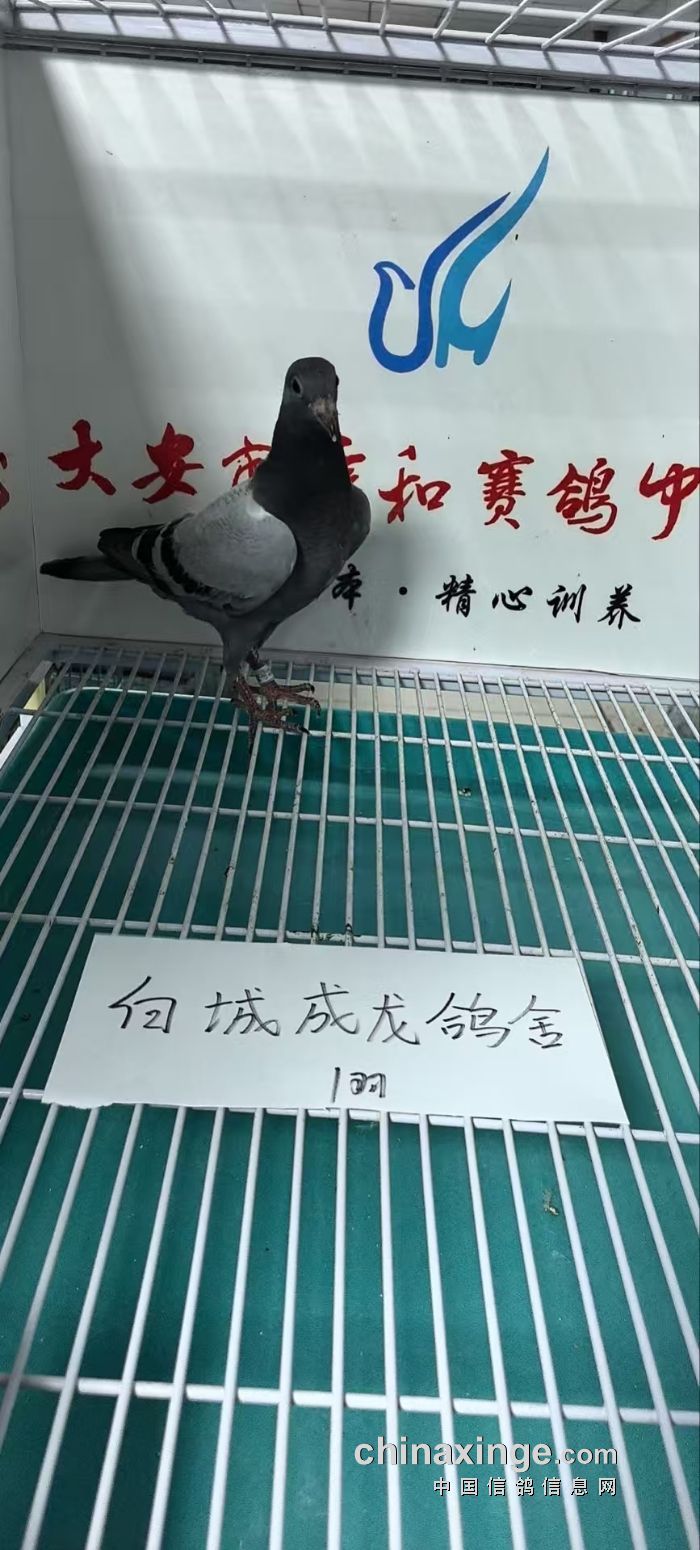 大安市 和赛鸽中
本·精心训养
白城成龙鸽舍
1羽
chinaxinge.com
中国信鸽信息网